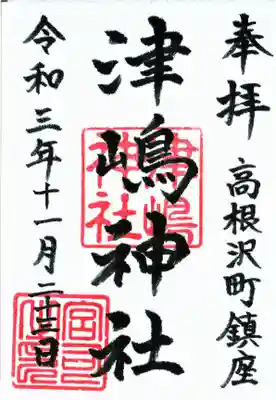 奉拝
高根沢町鎮座
津嶋神社
津嶋神社
令和三年十一月二十三日